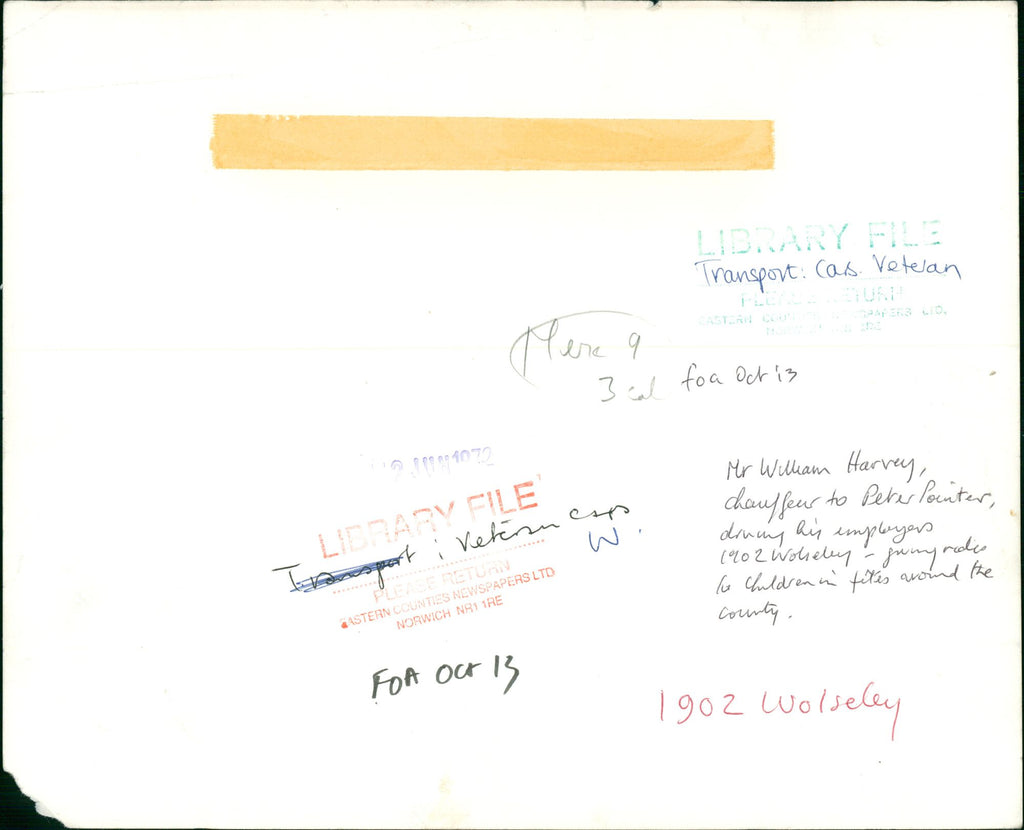 LIBRARY FILE
Transport: Cars. Veteran
PLEASE RETURN
EASTERN COUNTIES NEWSPAPERS LTD.
NORWICH NR1 1RE
9
3 col
foa Oct 13
JUN 1972
LIBRARY FILE
Transport : Veteran cars
W.
PLEASE RETURN
EASTERN COUNTIES NEWSPAPERS LTD
NORWICH NR1 1RE
Mr William Harvey,
chauffeur to Peter Pointer,
driving his employers
1902 Wolseley – giving rides
to children in fêtes around the
county.
FOA Oct 13
1902 Wolseley